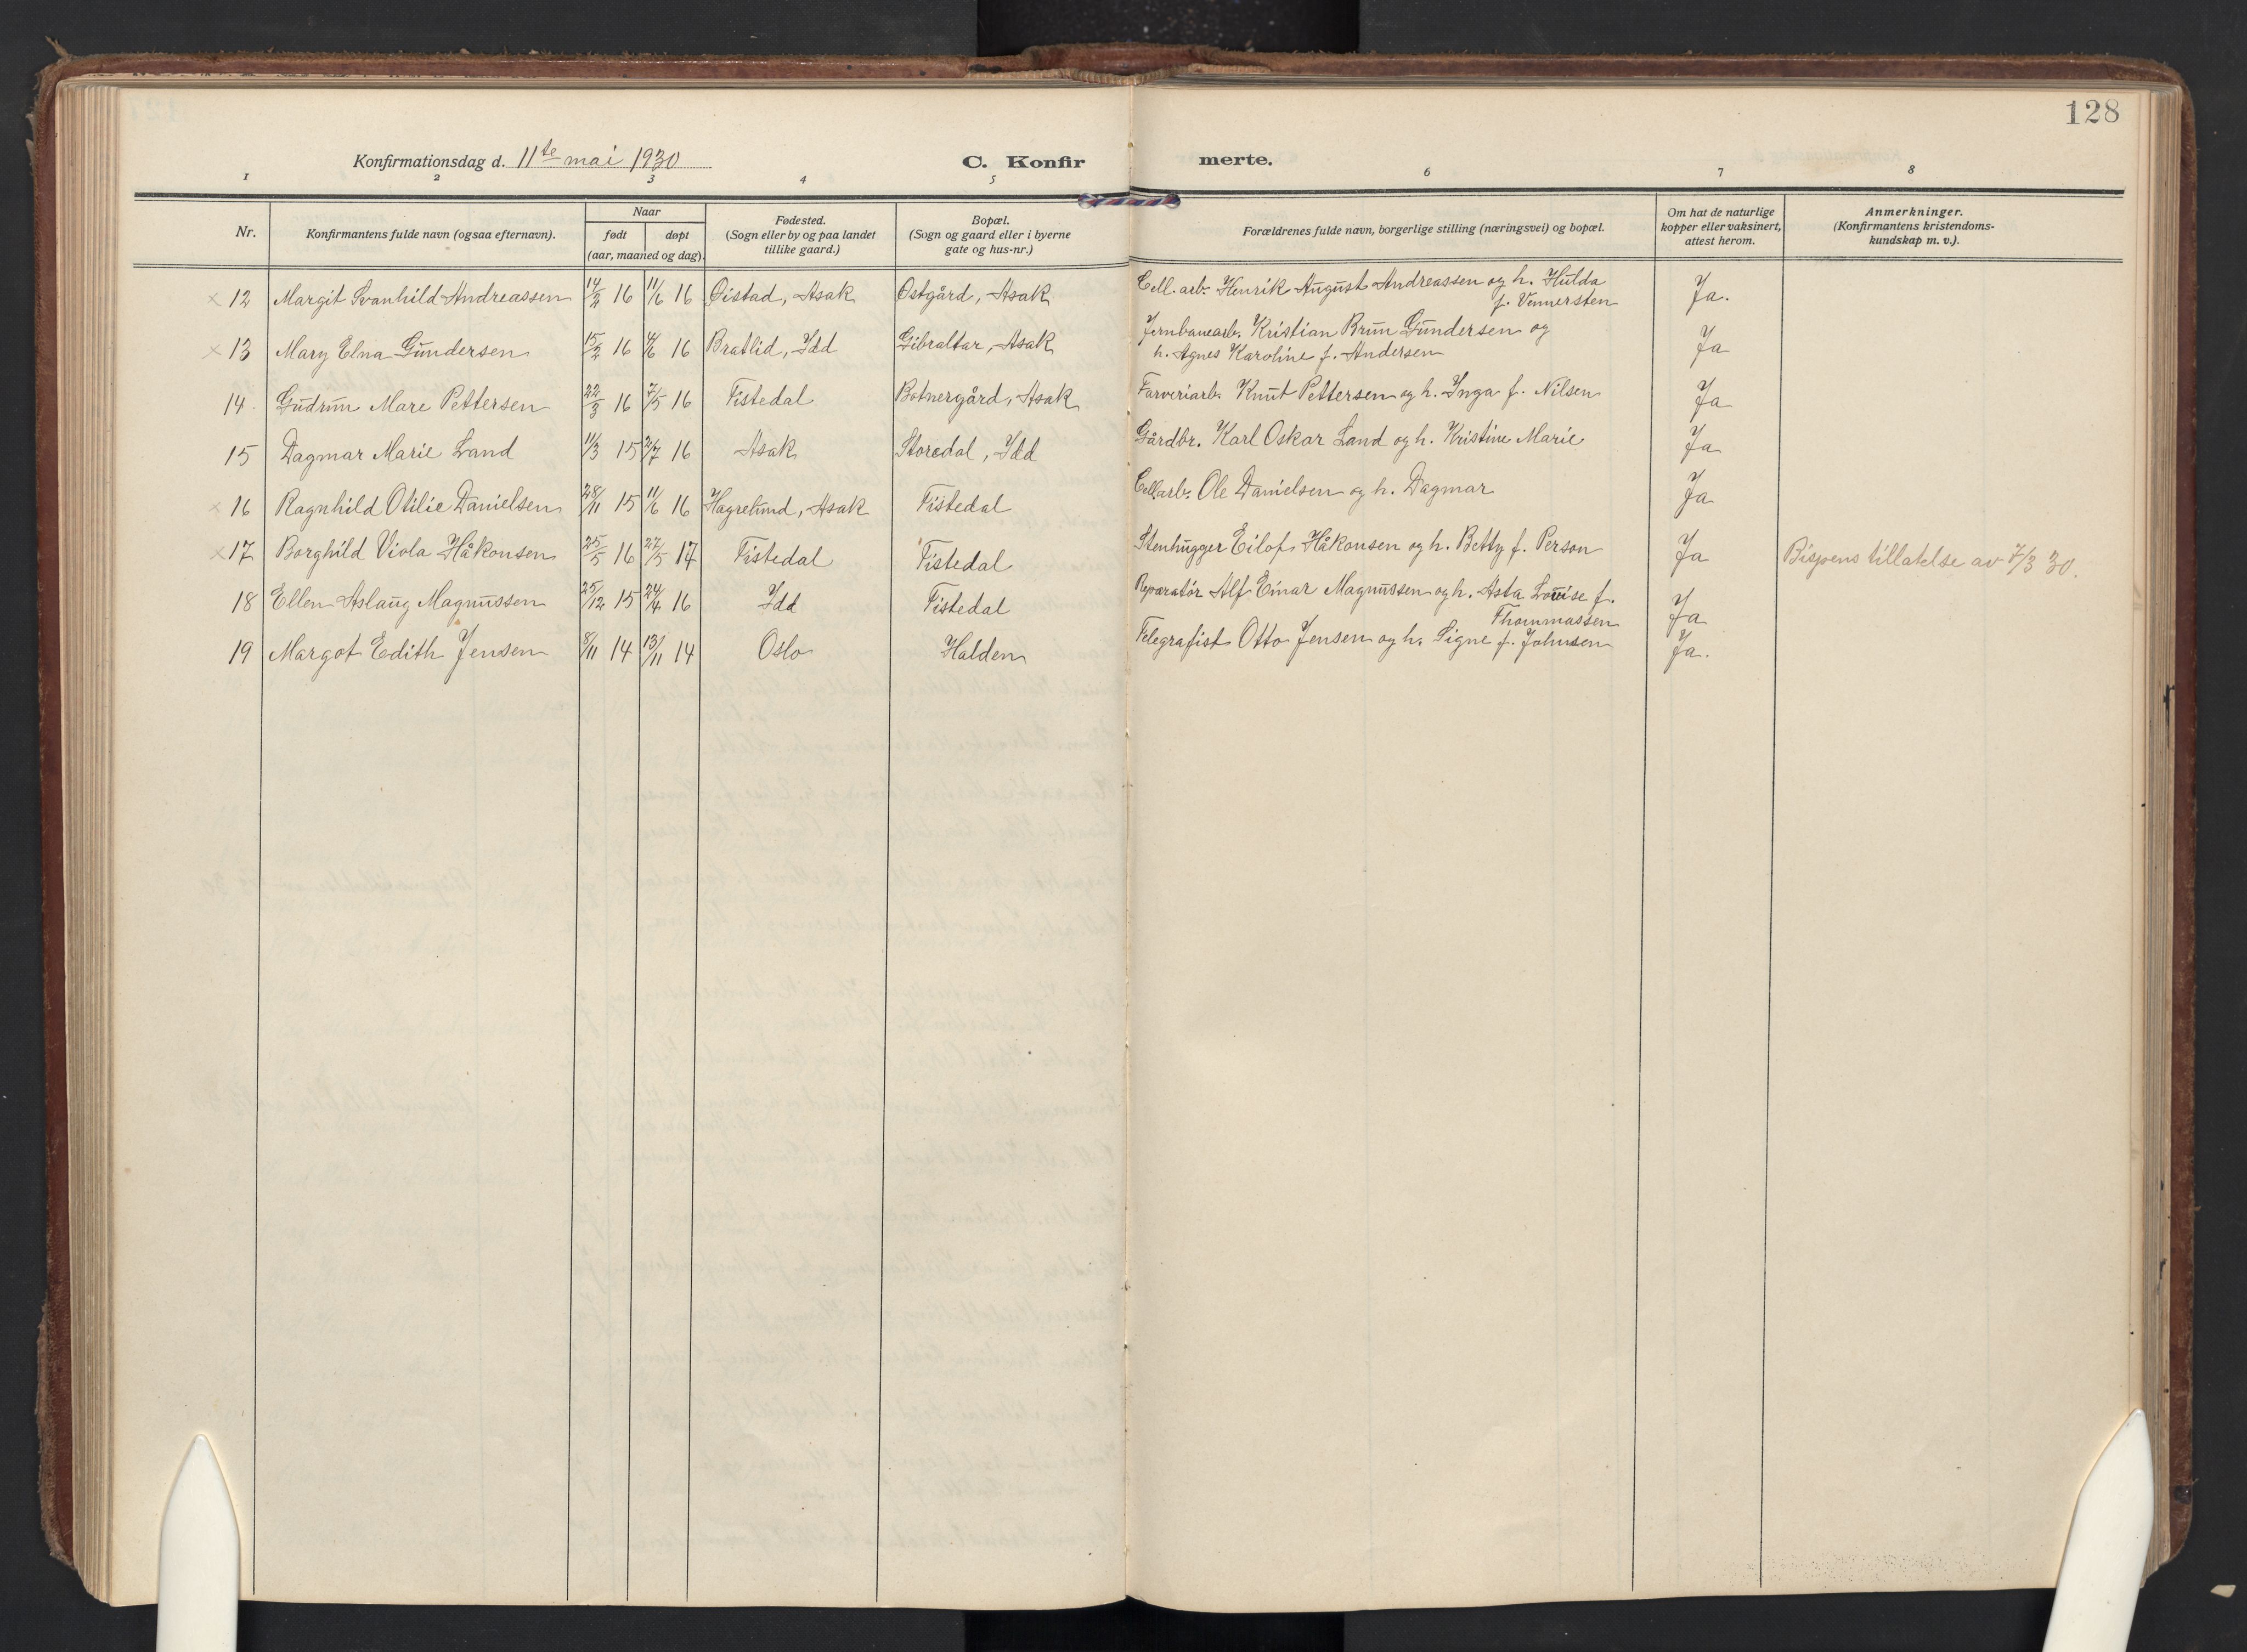 128
Konfirmationsdag d. 11te mai 1930 C. Konfir merte.
1 2 3 4 5 6 7 8
Nr. Konfirmantens fulde navn (ogsaa efternavn). Naar født døpt (aar, maaned og dag). Fødested. (Sogn eller by og paa landet tillike gaard.) Bopæl. (Sogn og gaard eller i byerne gate og hus-nr.) Forældrenes fulde navn, borgerlige stilling (næringsvei) og bopæl. Om hat de naturlige kopper eller vaksinert, attest herom. Anmerkninger. (Konfirmantens kristendoms-kundskap m. v.).
× 12 Margit Svanhild Andreassen 14/2 16 11/6 16 Øistad, Asak Østgård, Asak Cell. arb. Henrik August Andreassen og h. Hulda f. Vennersten Ja.
× 13 Mary Elna Gundersen 15/2 16 4/6 16 Bratlid, Idd Gibraltar, Asak Jernbanearb. Kristian Brun Gundersen og h. Agnes Karoline f. Andersen Ja
14. Gudrun Mare Pettersen 22/3 16 7/5 16 Tistedal Botnergård, Asak Farveriarb. Knut Pettersen og h. Inga f. Nilsen Ja
15 Dagmar Marie Land 11/3 15 2/7 16 Asak Storedal, Idd Gårdbr. Karl Oskar Land og h. Kristine Marie Ja
× 16 Ragnhild Otilie Danielsen 28/11 15 11/6 16 Hagrelund, Asak Tistedal Cell.arb. Ole Danielsen og h. Dagmar Ja
× 17 Borghild Viola Håkonsen 25/5 16 27/5 17 Tistedal Tistedal Stenhugger Eilof Håkonsen og h. Betty f. Person Ja Bispens tillatelse av 7/3 30.
18 Ellen Aslaug Magnussen 25/12 15 24/4 16 Idd Tistedal Reparatør Alf Einar Magnussen og h. Asta Louise f. Thommassen Ja
19 Margot Edith Jensen 8/11 14 13/11 14 Oslo Halden Telegrafist Otto Jensen og h. Signe f. Johnsen Ja.